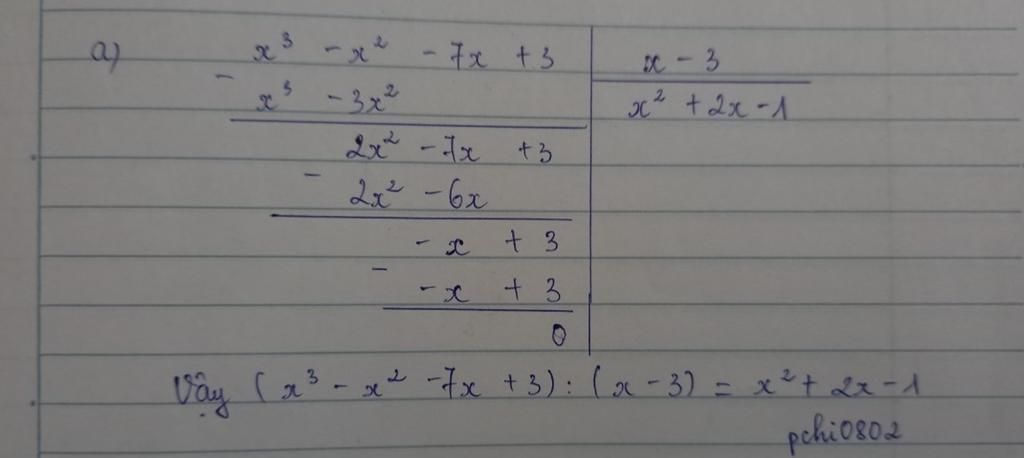 a) x³ - x² - 7x + 3 | x - 3
- x³ - 3x² | x² + 2x - 1
2x² - 7x + 3
- 2x² - 6x
- x + 3
- - x + 3
0
Vậy (x³ - x² - 7x + 3) : (x - 3) = x² + 2x - 1
pchi0802